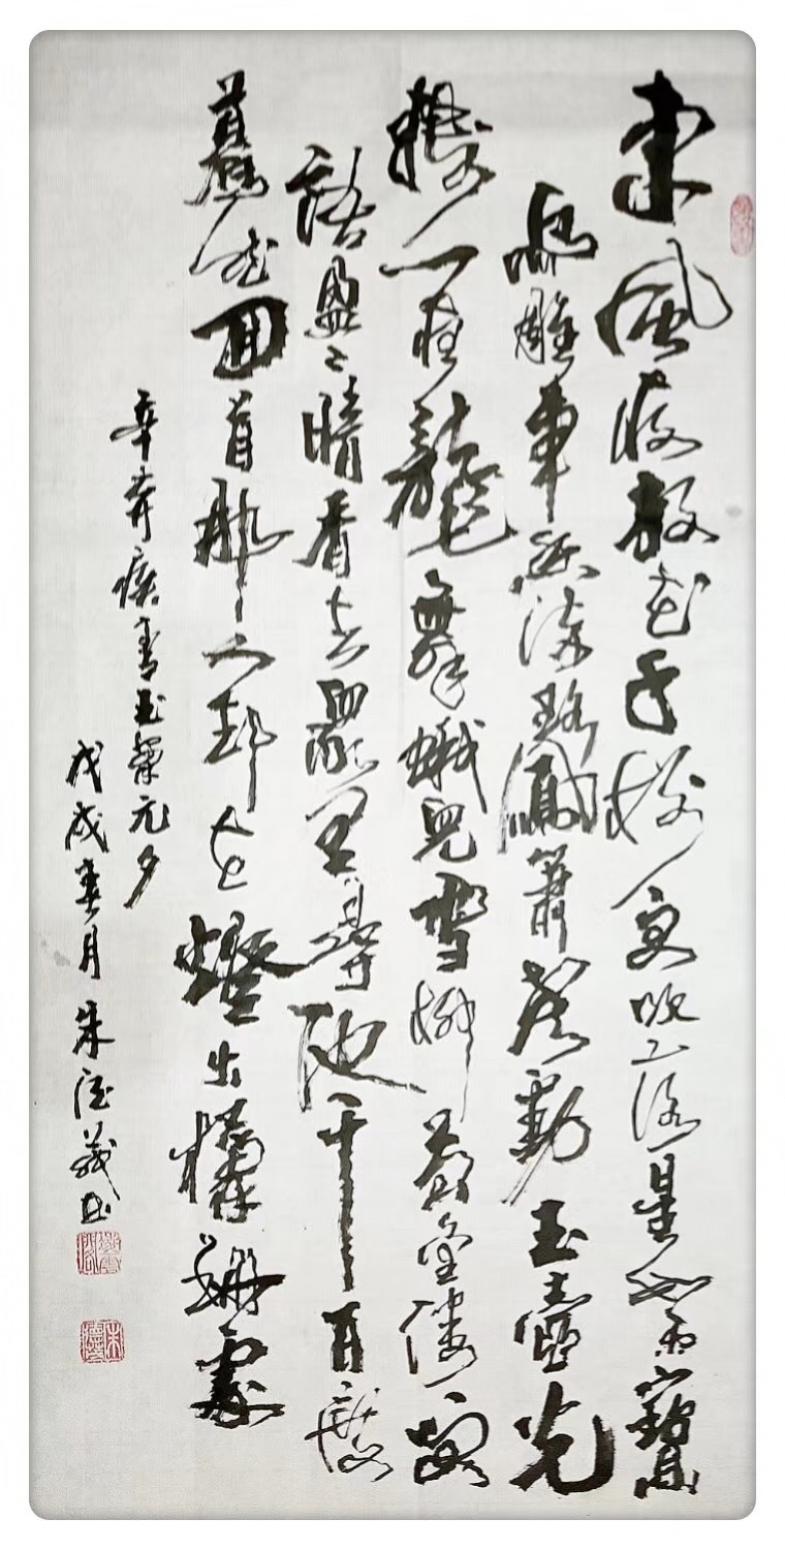 東風夜放花千樹更吹落星如雨寶
馬雕車香滿路鳳簫聲動玉壺光
轉一夜龍舞蛾兒雪柳黃金縷笑
語盈々暗香去眾里尋他千百度
驀然回首那人却在燈火闌珊處
辛弃疾青玉案元夕
戊戌春月朱德義書